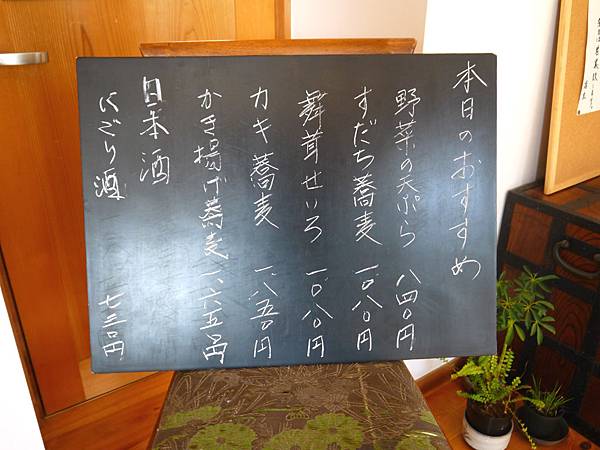 本日のおすすめ
野菜の天ぷら 八四〇円
すだち蕎麦 一〇八〇円
舞茸せいろ 一〇八〇円
カキ蕎麦 一、八五〇円
かき揚げ蕎麦 一、六五〇円
日本酒
にごり酒 七三〇円